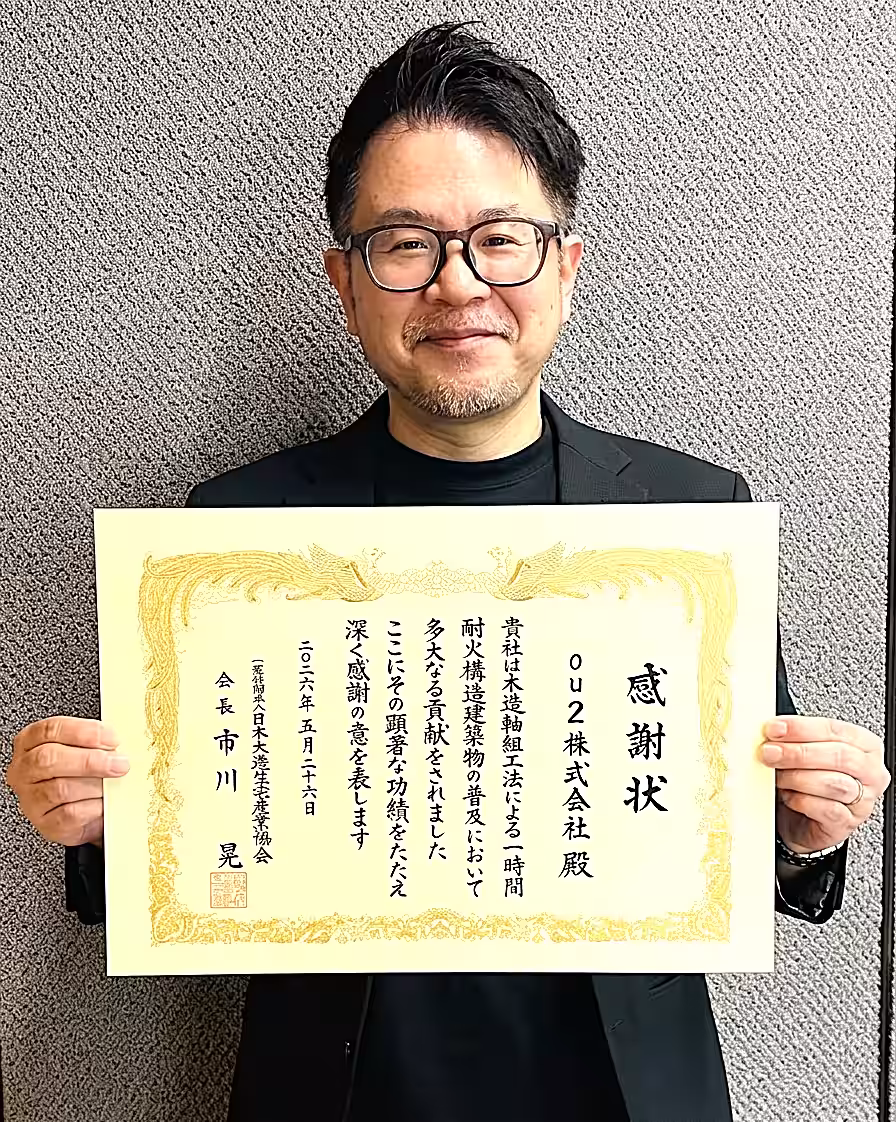 感謝状
ou2株式会社 殿
貴社は木造軸組工法による一時間
耐火構造建築物の普及において
多大なる貢献をされました
ここにその顕著な功績をたたえ
深く感謝の意を表します
二〇二六年 五月 二十六日
日本木造住宅産業協会
会長 市川 晃